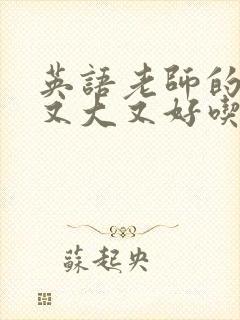 英語老師的
又大又好喫
蘇起央